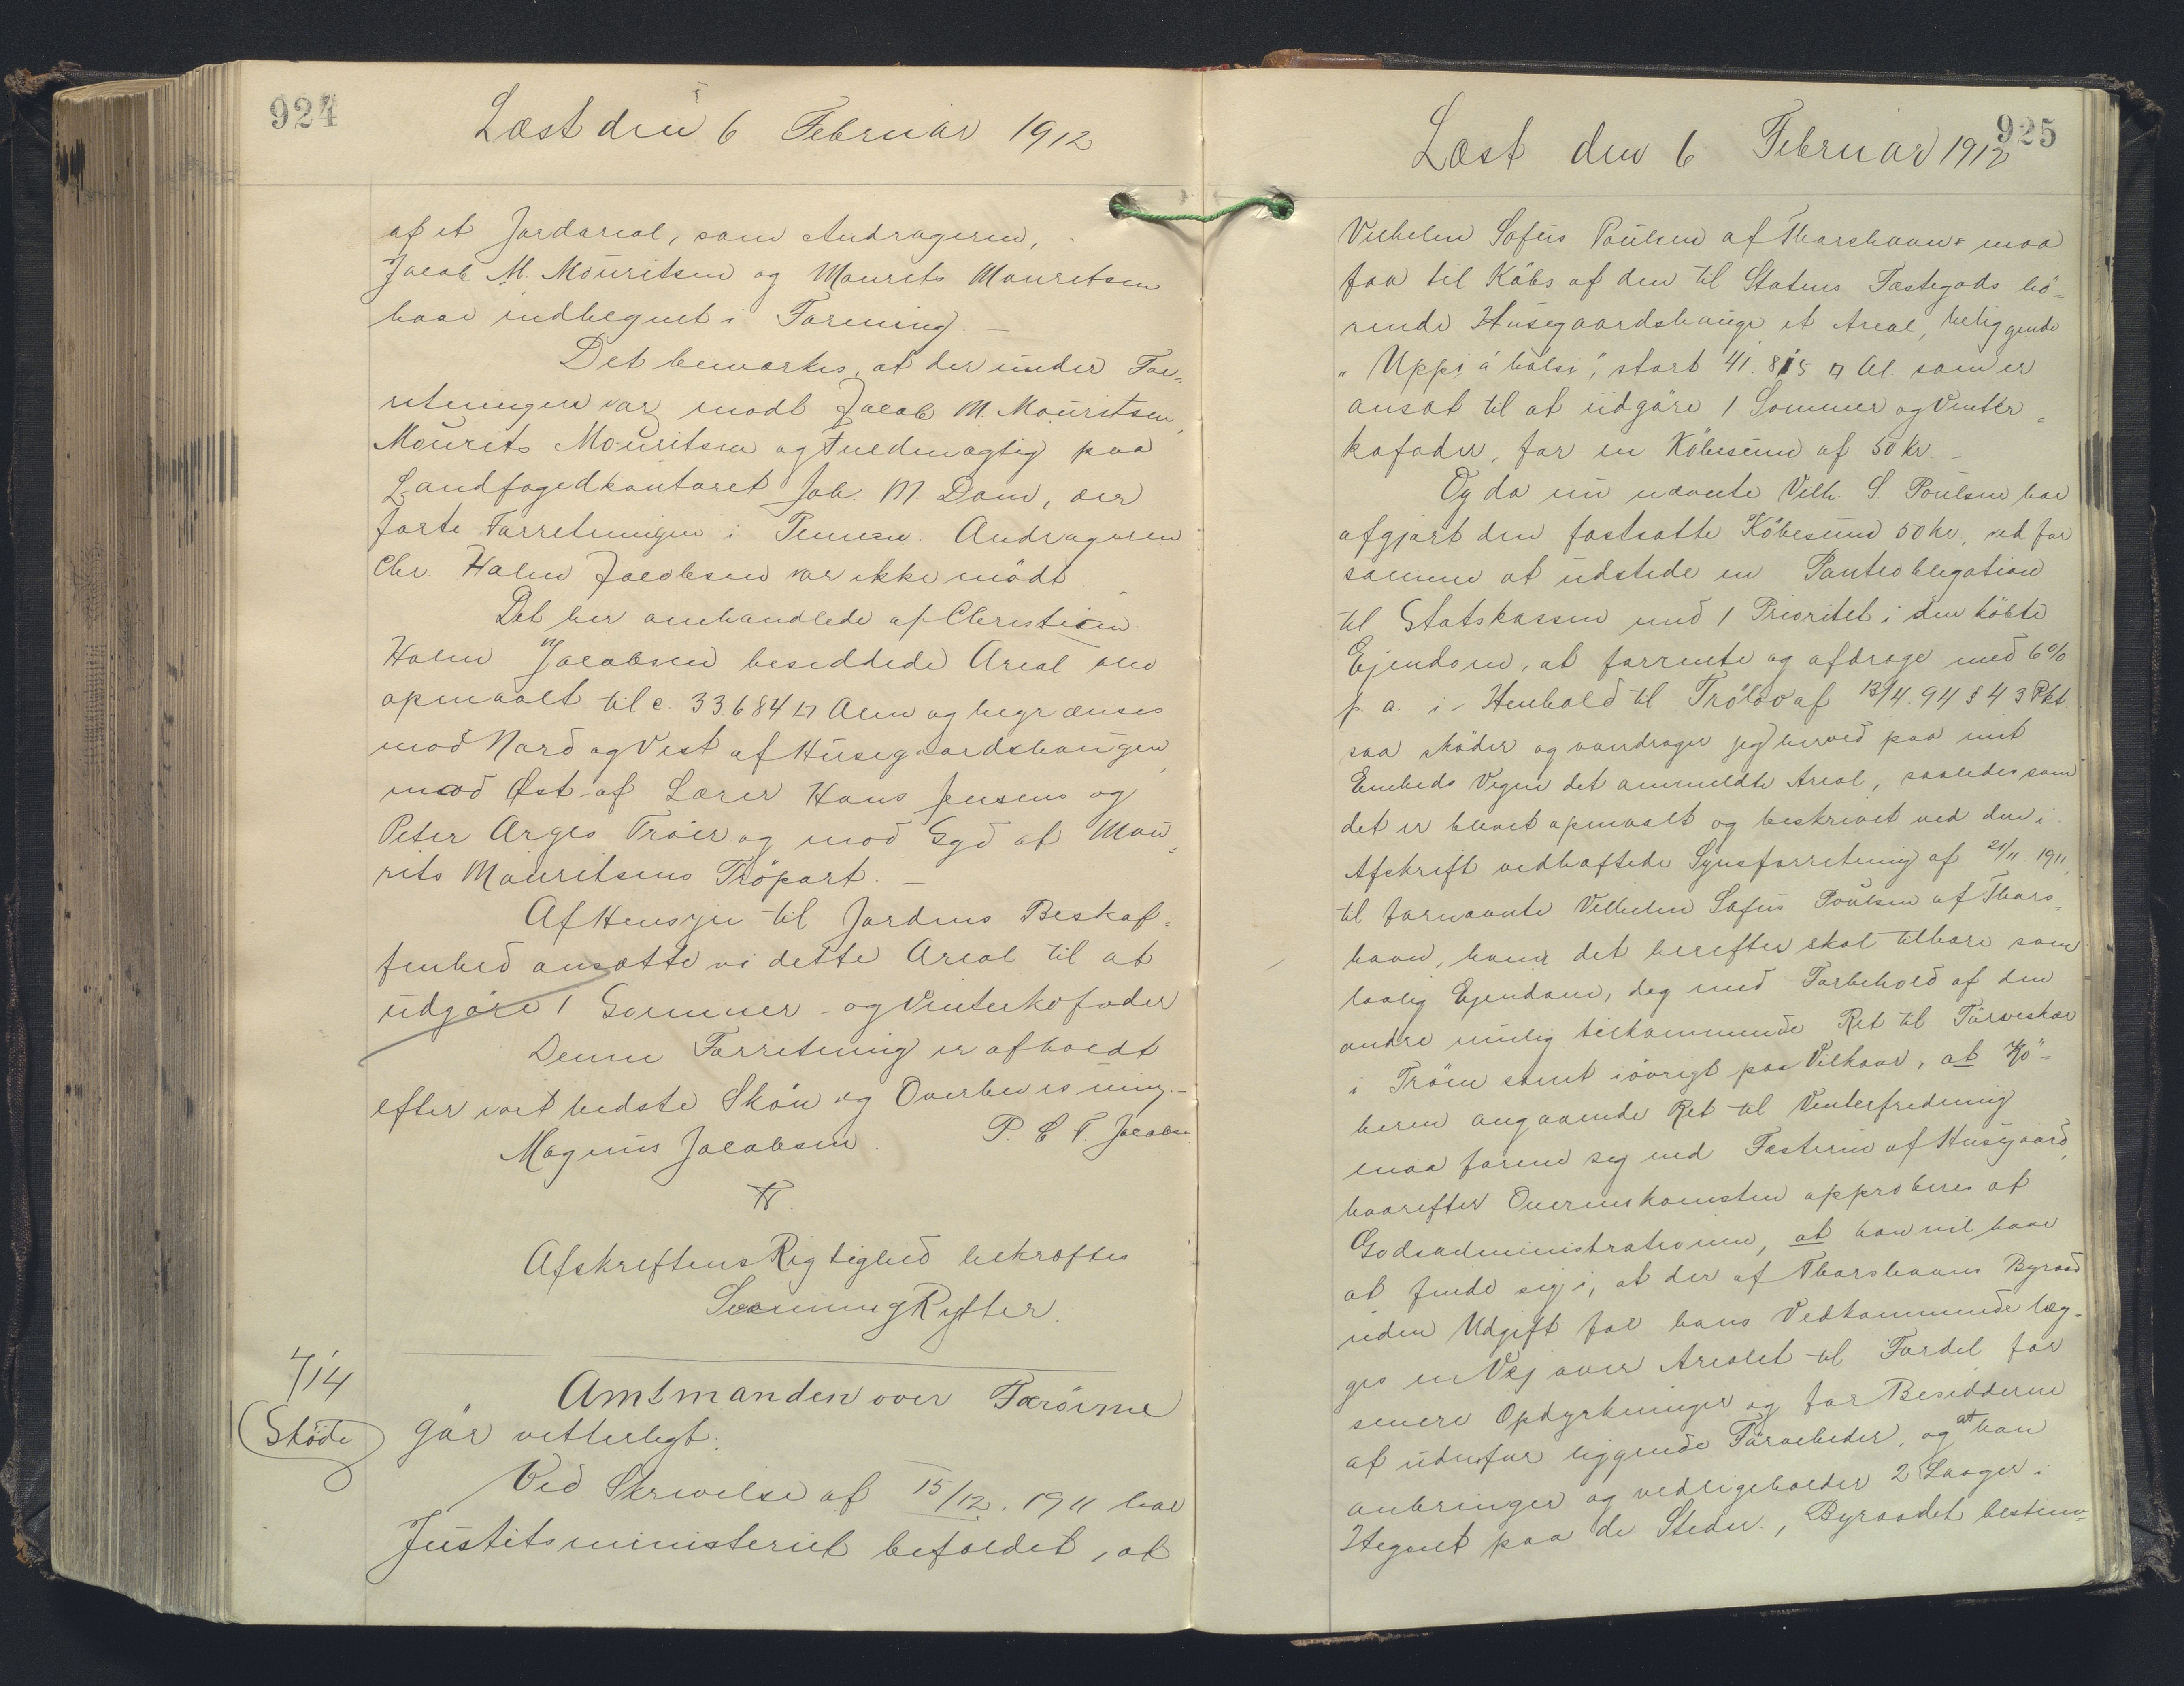 924
Læst den 6 Februar 1912
af et Jordareal, som Andrageren,
Jacob M. Mouritsen og Mourits Mouritsen
have indhegnet i Forening. –
Det bemærkes, at der under For-
retningen var mødt Jacob M. Mouritsen,
Mourits Mouritsen og Fuldmægtig paa
Landfogedkontoret Joh. M. Dam, der
førte Forretningen i Pennen. Andrageren
Chr. Holm Jacobsen var ikke mødt
Det her omhandlede af Christian
Holm Jacobsen besiddede Areal blev
opmaalt til c. 33684 □ Alen og begrænses
mod Nord og Vest af Húsegaardshaugen,
mod Øst af Lærer Hans Jensens og
Peter Arges Trøer og mod Syd af Mou-
rits Mouritsens Trøpart. –
Af Hensyn til Jordens Beskaf-
fenhed ansætte vi dette Areal til at
udgøre 1 Sommer- og Vinterkofoder
Denne Forretning er afholdt
efter vort bedste Skøn og Overbevisning. –
Magnus Jacobsen. P. C. F. Jacobsen
Afskriftens Rigtighed bekræftes
Svenning Rytter.
714
Skøde
Amtmanden over Færøerne
gør vitterligt:
Ved Skrivelse af 15/12. 1911 har
Justitsministeriet bifaldet, at
925
Læst den 6 Februar 1912
Vilhelm Sofus Poulsen af Thorshavn maa
faa til Købs af den til Statens Fæstegods hö-
rende Húsegaardshauge et Areal, beliggende
„Uppi á hálsi", stort 41.815 □ Al. som er
ansat til at udgøre 1 Sommer og Vinter-
kofoder, for en Købesum af 50 Kr. –
Og da nu nævnte Vilh. S. Poulsen har
afgjort den fastsatte Købesum 50 Kr., ved for
samme at udstede en Panteobligation
til Statskassen med 1 Prioritet i den købte
Ejendom, at forrente og afdrage med 6%
p. a. i Henhold til Trølov af 13/4. 94 § 4 3 Pkt.
saa skøder og overdrager jeg herved paa mit
Embeds Vegne det ommeldte Areal, saaledes som
det er blevet opmaalt og beskrevet ved den i
Afskrift vedhæftede Synsforretning af 21/11. 1911,
til fornævnte Vilhelm Sofus Poulsen af Thors-
havn, hvem det herefter skal tilhøre som
lovlig Ejendom, dog med Forbehold af den
andre mulig tilkommende Ret til Tørveskær
i Trøen samt iøvrigt paa Vilkaar, at Kø-
beren angaaende Ret til Vinterfredning
maa forene sig med Fæsteren af Husgaard,
hvorefter Overenskomsten approberes af
Godsadministrationen, at han vil have
at finde sig i, at der af Thorshavns Byraad
uden Udgift for hans Vedkommende læg-
ges en Vej over Arealet til Fordel for
senere Opdyrkninger og for Besidderne
af udenfor liggende Tørvebeder, og at han
anbringer og vedligeholder 2 Laager i
Hegnet paa de Steder, Byraadet bestem-